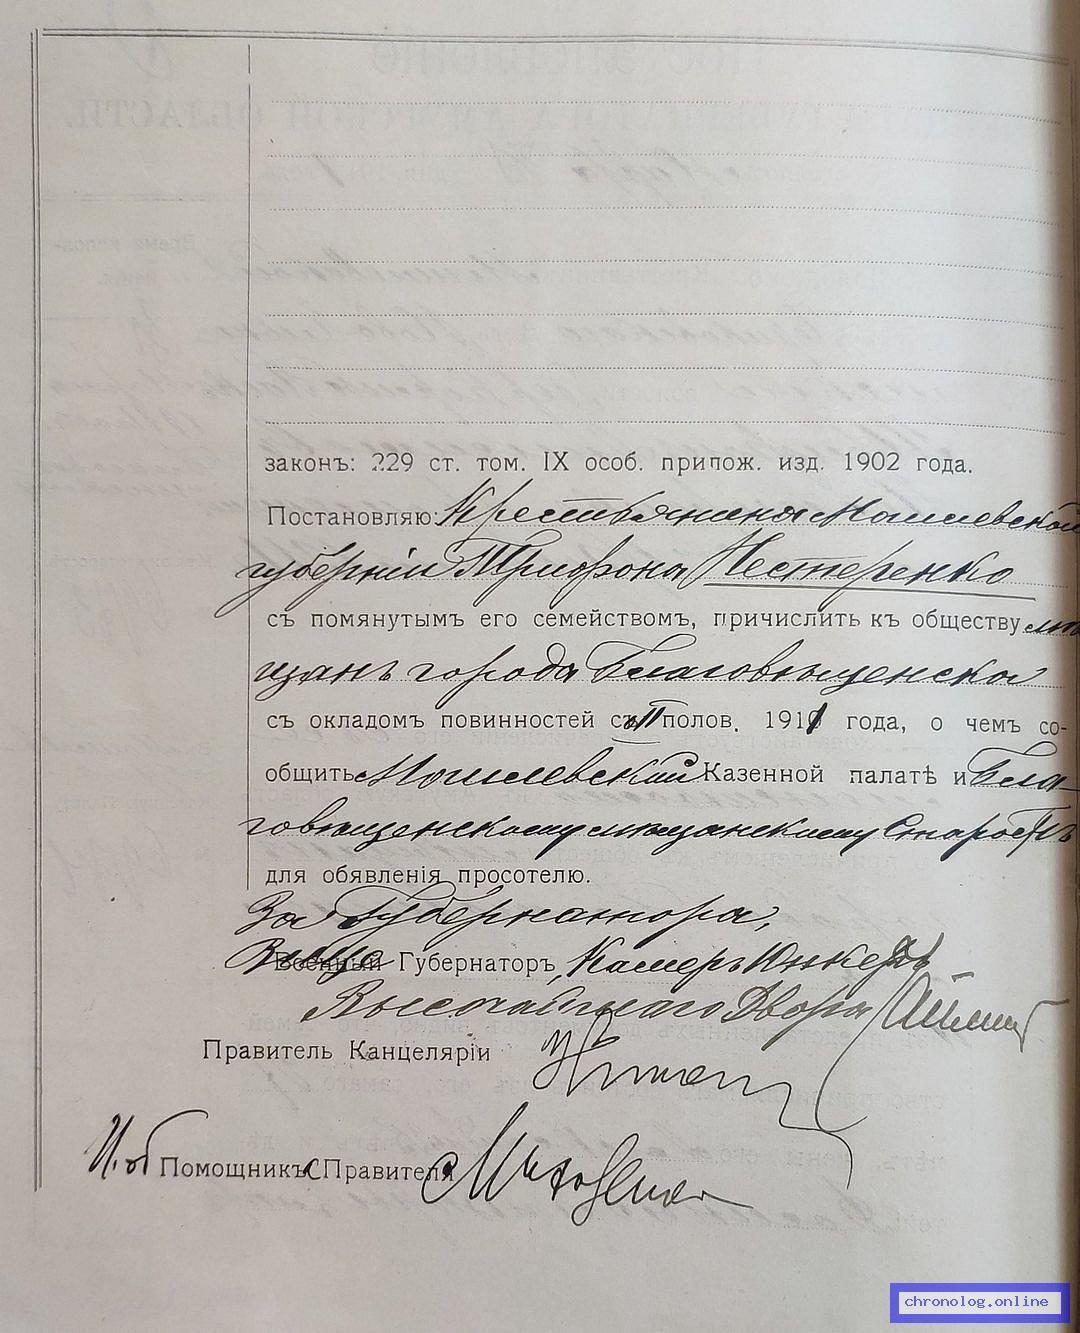 законъ: 229 ст. том. IX особ. припож. изд. 1902 года.
Постановляю: Крестьянина Могилевской
губерніи Трифона Нестеренко
съ помянутымъ его семействомъ, причислить къ обществу мѣ-
щанъ города Благовѣщенска
съ окладомъ повинностей съ II полов. 1911 года, о чемъ со-
общить Могилевской Казенной палатѣ и Бла-
говѣщенскому мѣщанскому Старостѣ
для обявленія просотелю.
За Губернатора,
Вице Губернаторъ, Камеръ Юнкеръ
Высочайшаго Двора
Правитель Канцеляріи
И. об. Помощникъ Правителя
chronolog.online